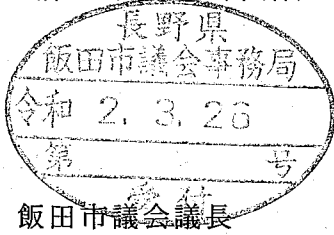 長野県
飯田市議会事務局
令和 2. 3. 26
第 号
受付
飯田市議会議長